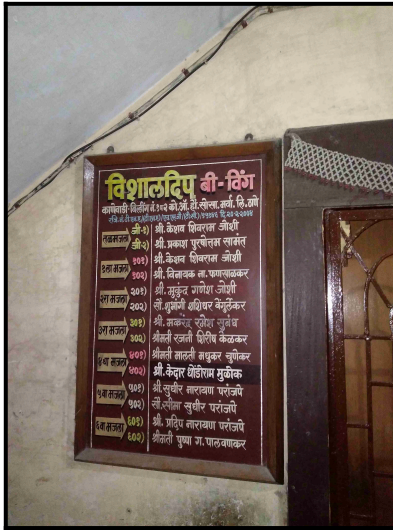 विशालदिप बी-विंग
काणेवाडी-बिल्डींग नं.१०२ को.ऑ. हौ. सोसा. मर्या. लि. ठाणे
तळमजला जी-१ श्री. केशव शिवराम जोशी
जी-२ श्री. प्रकाश पुरषोत्तम सामंत
१ला मजला १०१ श्री. केशव शिवराम जोशी
१०२ श्री. विनायक ना. फणसाळकर
२रा मजला २०१ श्री. मुकुंद गणेश जोशी
२०२ सौ. शुभांगी शशिधर वेंगुर्लेकर
३रा मजला ३०१ श्री. मकरंद रमेश
३०२ श्रीमती रजनी शिरीष केळकर
४था मजला ४०१ श्रीमती मालती मधुकर चुणेकर
४०२ श्री. केदार धोंडीराम मुळीक
५वा मजला ५०१ श्री. सुधीर नारायण परांजपे
५०२ सौ. सीमा सुधीर परांजपे
६वा मजला ६०१ श्री. प्रदिप नारायण परांजपे
६०२ श्रीमती पुष्पा ग. पालवणकर